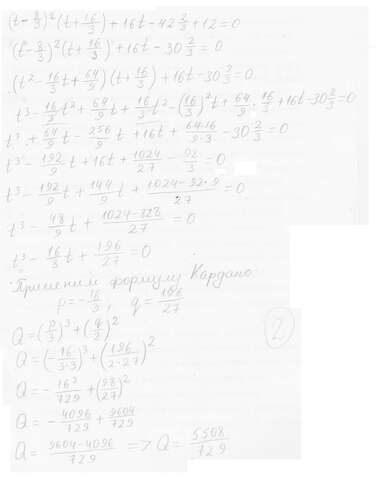 (t-8/3)²(t+16/3)+16t-42 2/3+12=0
(t-8/3)²(t+16/3)+16t-30 2/3=0
(t²-16/3t+64/9)(t+16/3)+16t-30 2/3=0
t³-16/3t²+64/9t+16/3t²-(16/3)²t+64/9·16/3+16t-30 2/3=0
t³+64/9t-256/9t+16t+64·16/9·3-30 2/3=0
t³-192/9t+16t+1024/27-92/3=0
t³-192/9t+144/9t+1024-92·9/27=0
t³-48/9t+1024-828/27=0
t³-16/3t+196/27=0
Применим формулу Кардано:
p=-16/3, q=196/27
Q=(p/3)³+(q/2)²
Q=(-16/3·3)³+(196/2·27)²
Q=-16³/729+(98/27)²
Q=-4096/729+9604/729
Q=9604-4096/729 => Q=5508/729
2